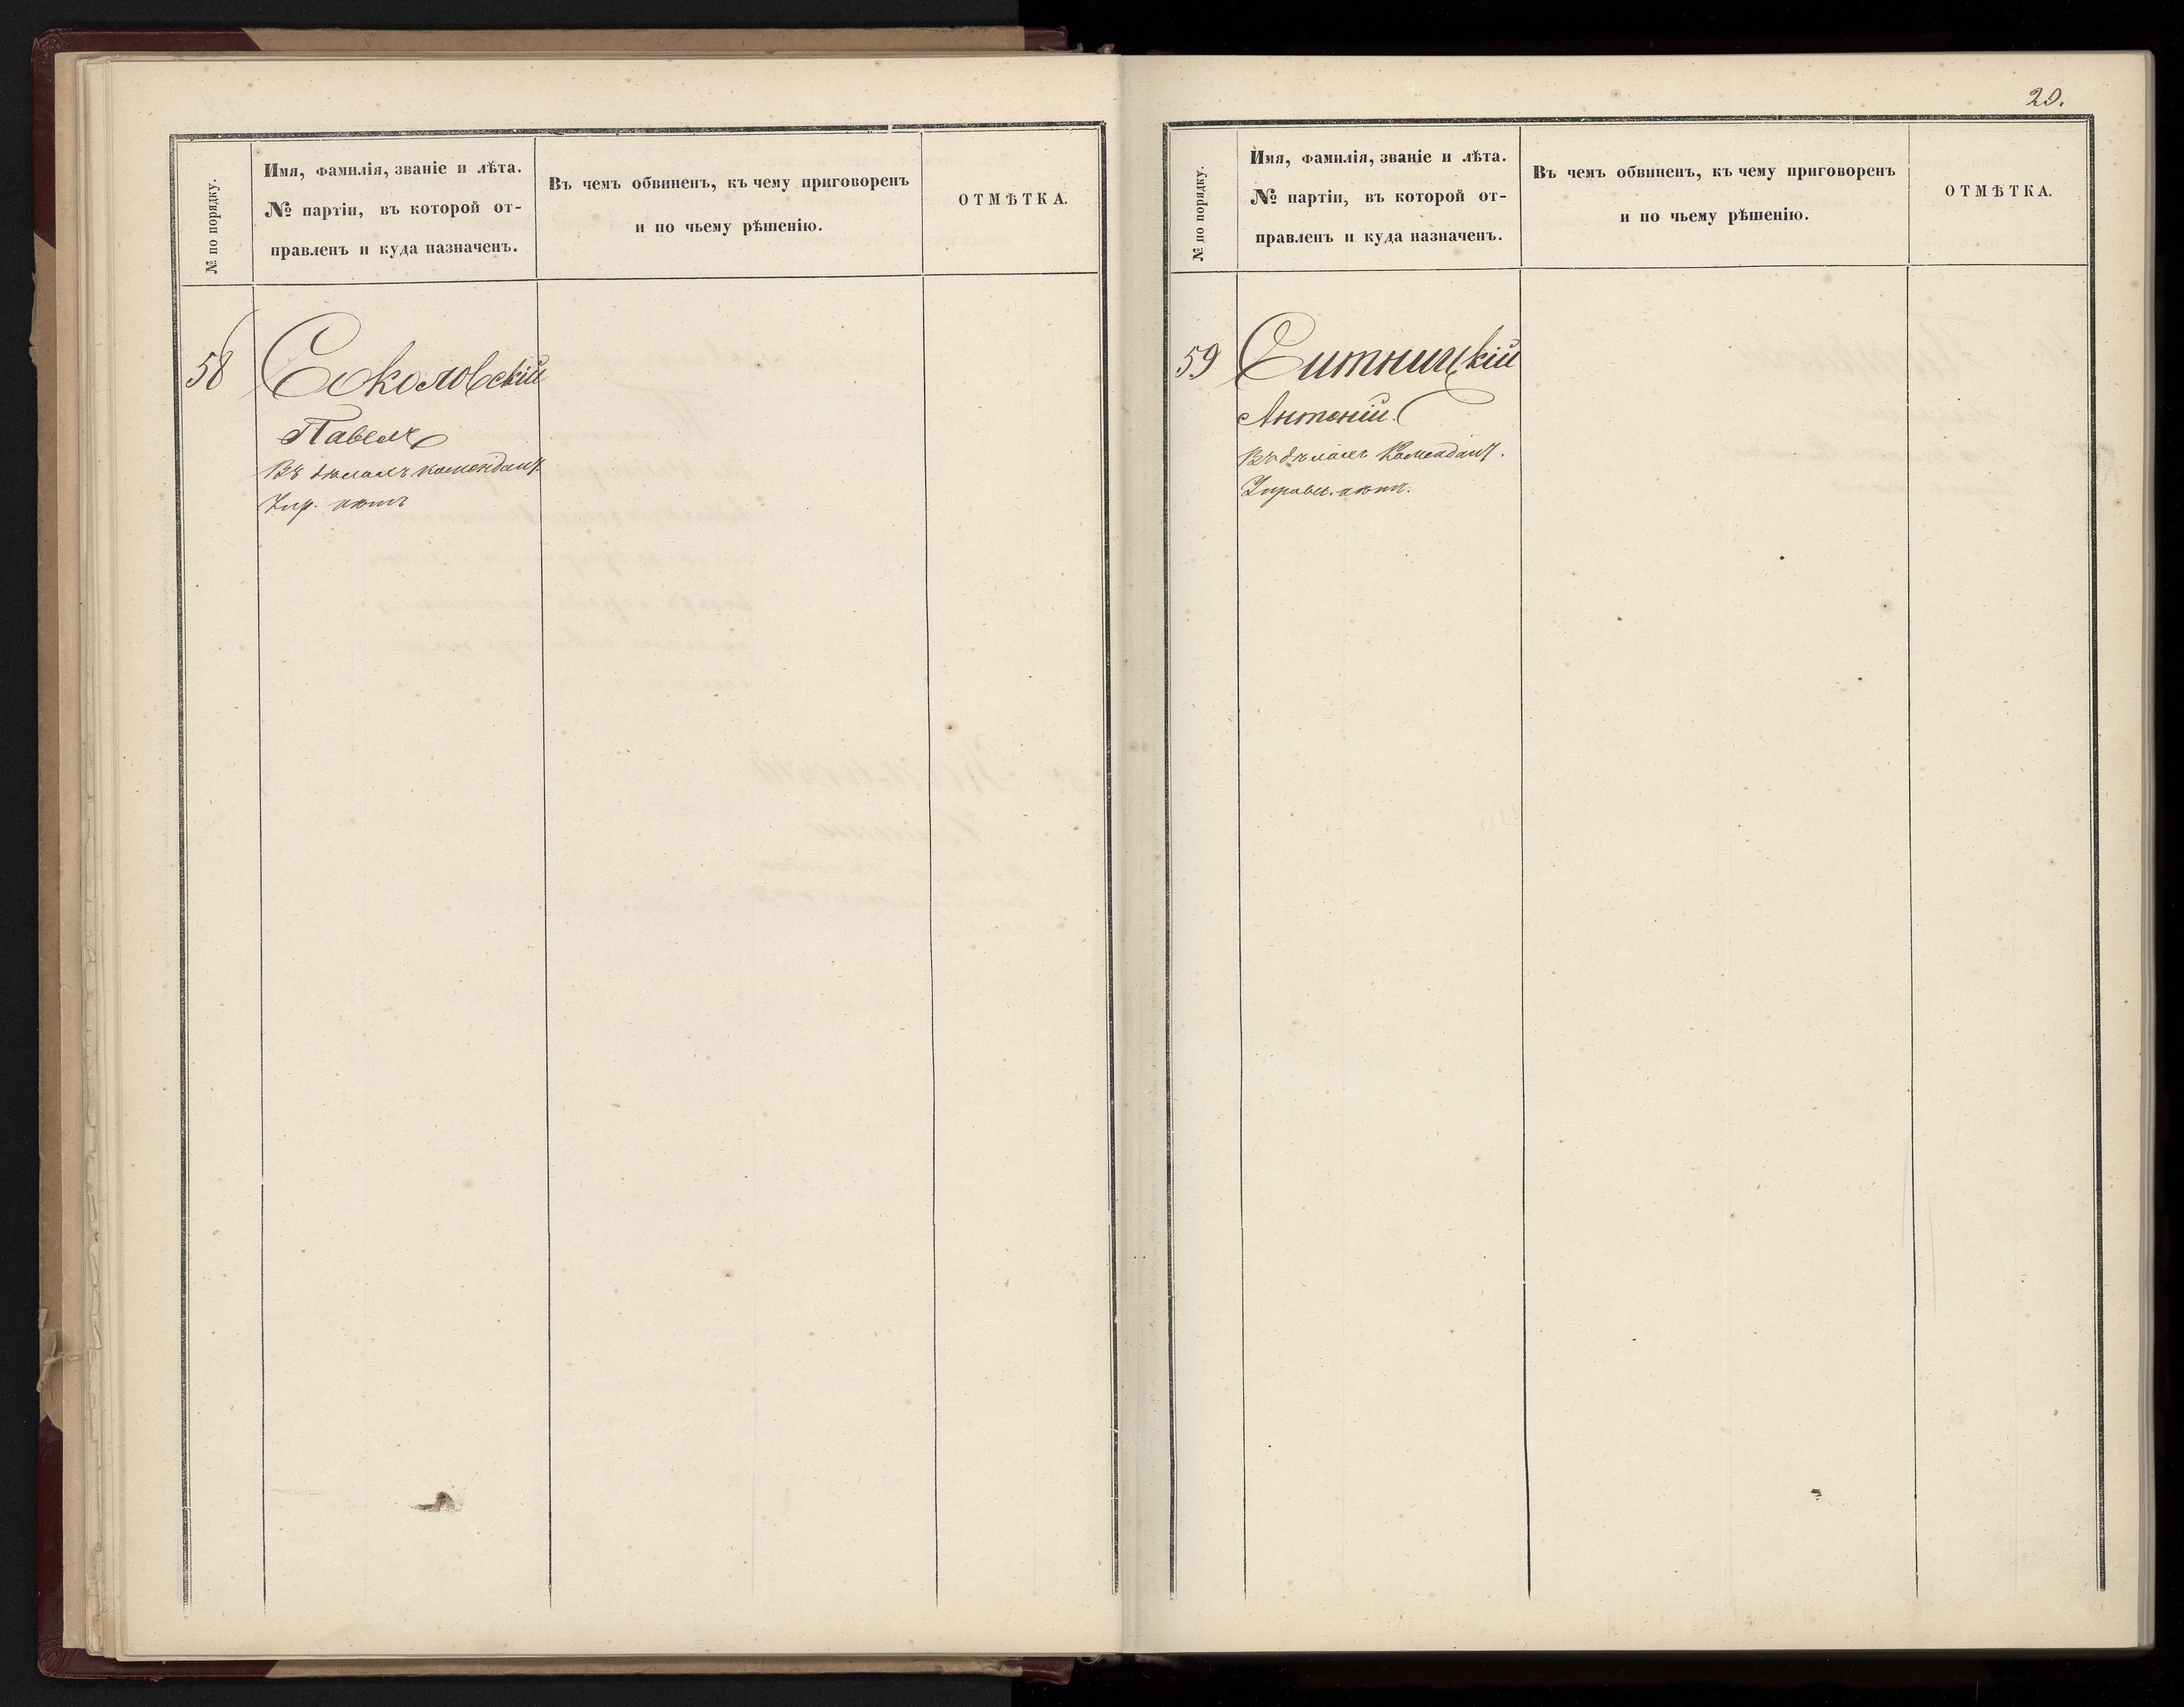 № по порядку.
Имя, фамилія, званіе и лѣта.
№ партіи, въ которой от-
правленъ и куда назначенъ.
Въ чемъ обвиненъ, къ чему приговоренъ
и по чьему рѣшенію.
ОТМѢТКА.
58
Соколовскій
Павелъ
Въ дѣлахъ комендант.
Упр. нѣтъ
20.
№ по порядку.
Имя, фамилія, званіе и лѣта.
№ партіи, въ которой от-
правленъ и куда назначенъ.
Въ чемъ обвиненъ, къ чему приговоренъ
и по чьему рѣшенію.
ОТМѢТКА.
59
Ситницкій
Антоній.
Въ дѣлахъ Комендант.
Управл. нѣтъ.